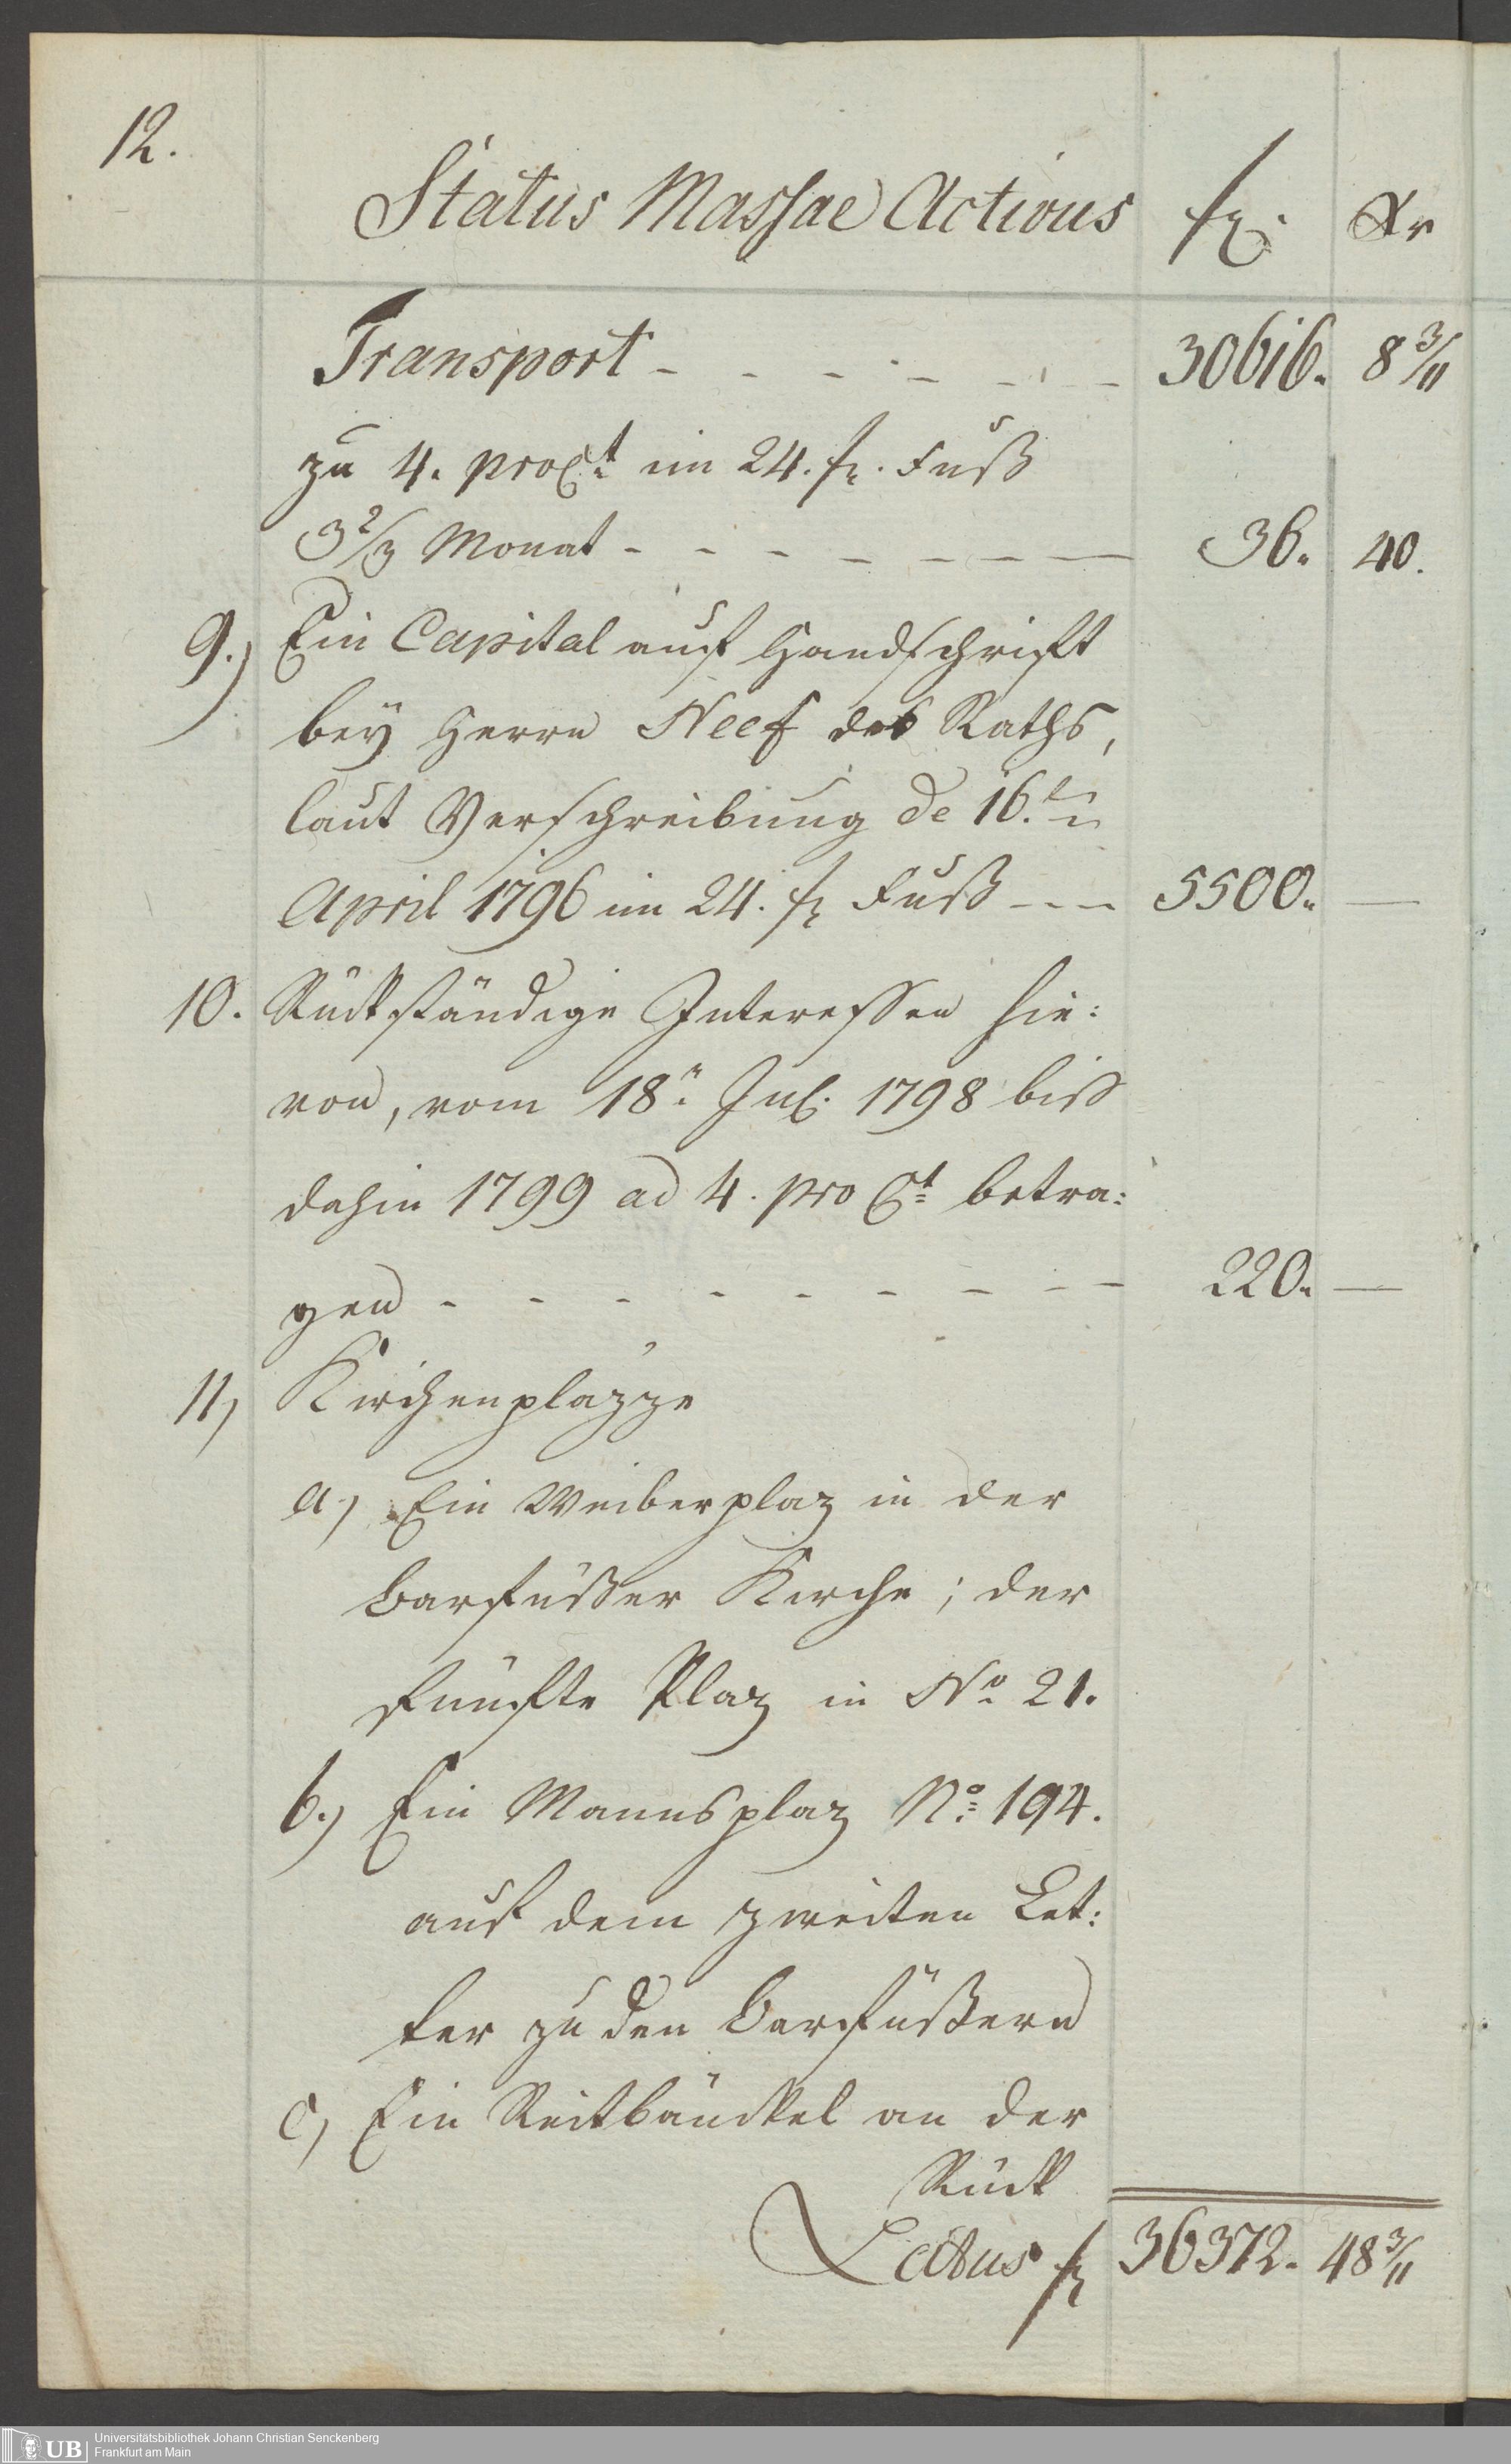 12.
Status Massae Activus fl. Xr
Transport - - - - - - - 30616. 8 3/11
zu 4. proCt. im 24. fl. Fuß
3 2/3 Monat - - - - - - - 36. 40.
9.) Ein Capital auf Handschrift
bey Herrn Neef des Raths,
laut Verschreibung de 16.ten
April 1796 im 24. fl Fuß - - - 5500. —
10. Rückständige Interessen hie:
von, vom 18n. Jul. 1798 biss
dahin 1799 ad 4. pro Ct betra:
gen - - - - - - - - - 220. —
11) Kirchenplazze
a.) Ein Weiberplaz in der
Barfüßer Kirche; der
fünfte Plaz in No 21.
b.) Ein Mannsplaz No. 194.
auf dem zweiten Let:
ter zu den Barfüßern
c) Ein Reitbänckel an der
Rück
Latus fl 36372. 48 3/11
UB Universitätsbibliothek Johann Christian Senckenberg
Frankfurt am Main